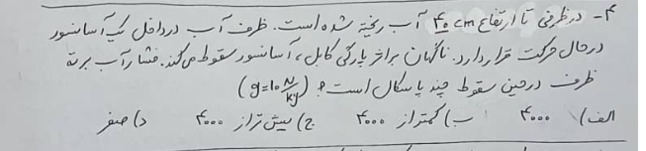 ۴- در ظرفی تا ارتفاع ۴۰ cm آب ریخته شده است. ظرف آب در داخل یک آسانسور
در حال حرکت قرار دارد. ناگهان بر اثر پارگی کابل، آسانسور سقوط می‌کند. فشار آب بر ته
ظرف در حین سقوط چند پاسکال است؟ (g=۱۰ N/kg)
الف) ۴۰۰۰ ب) کمتر از ۴۰۰۰ ج) بیش تر از ۴۰۰۰ د) صفر